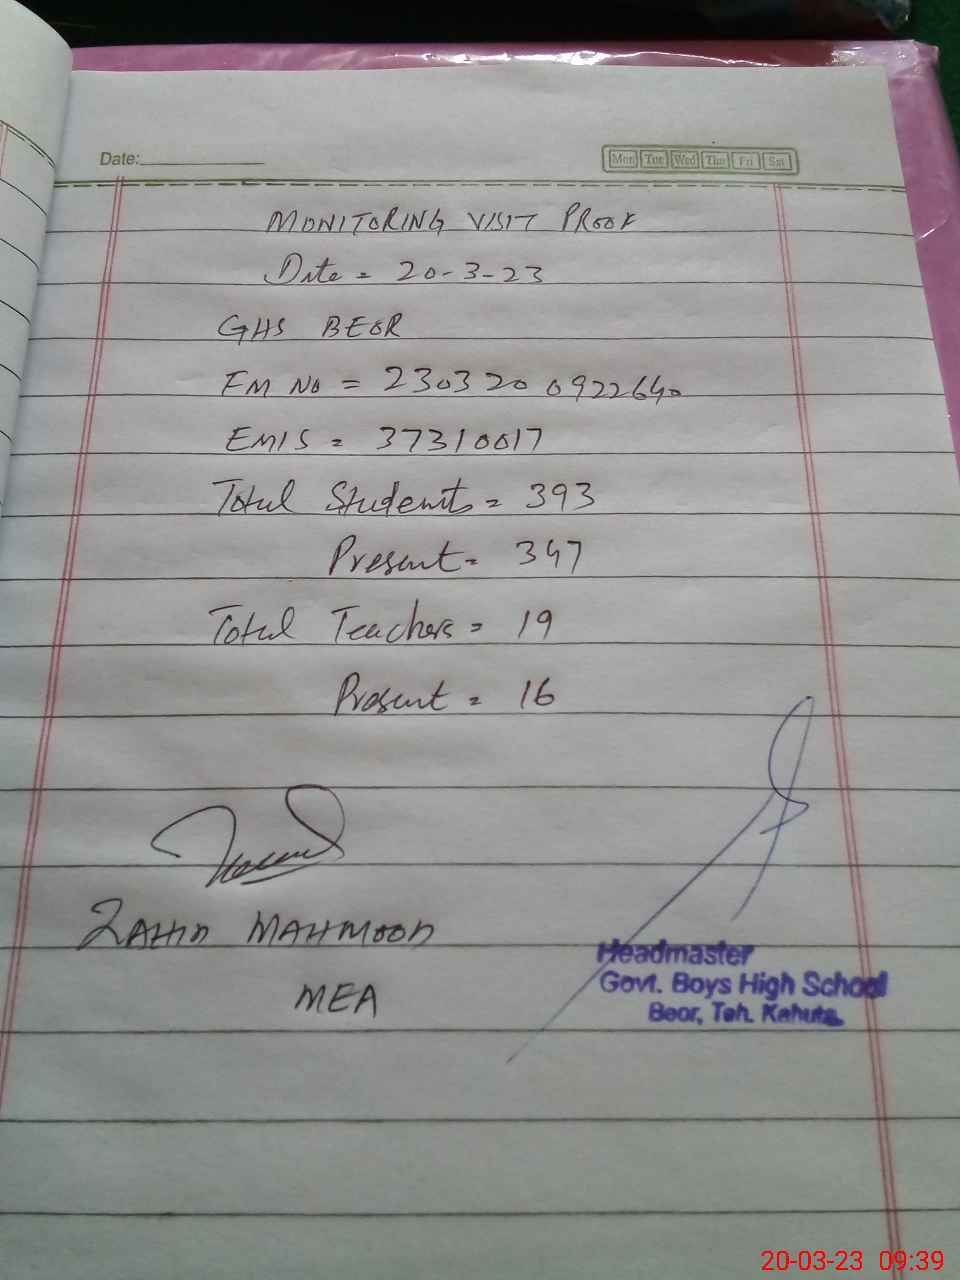 Date:
Mon Tue Wed Thu Fri Sat
MONITORING VISIT PROOF
Date = 20-3-23
GHS BEOR
FM NO = 2303200922640
EMIS = 37310017
Total Students = 393
Present = 347
Total Teachers = 19
Present = 16
ZAHID MAHMOOD
MEA
Headmaster
Govt. Boys High School
Beor, Teh. Kahuta.
20-03-23 09:39